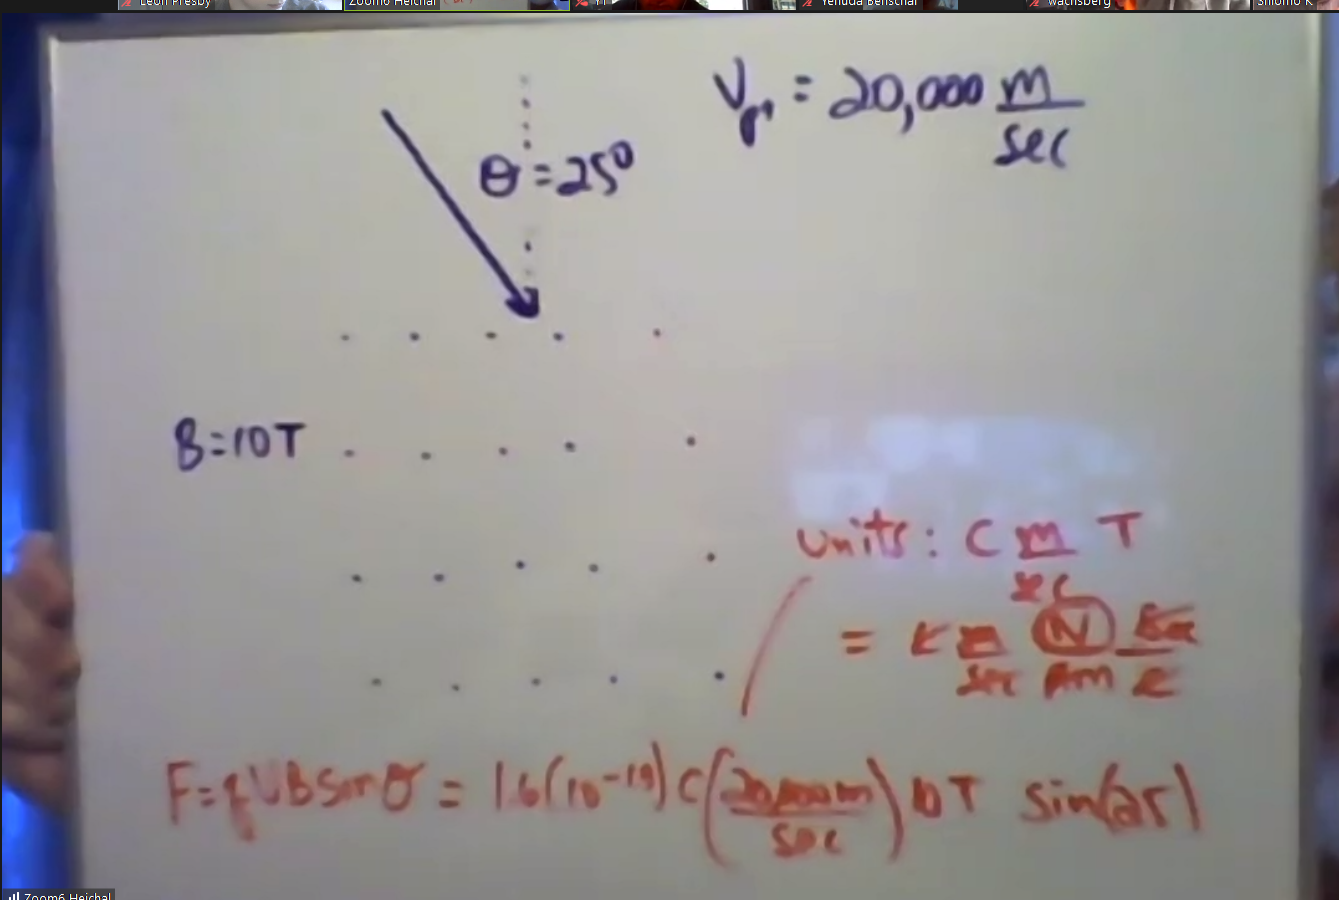 Leon Presby
Zoom6 Heichal
YT
Yehuda Benschar
wachsberg
Shlomo K
θ = 25°
= 20,000 m
sec
B=10T
units: C m T
sec
= C m N
sec Am
F=qVBsinθ = 1.6(10⁻¹⁹) C (20,000 m) 10 T sin(25)
sec
Zoom6 Heichal